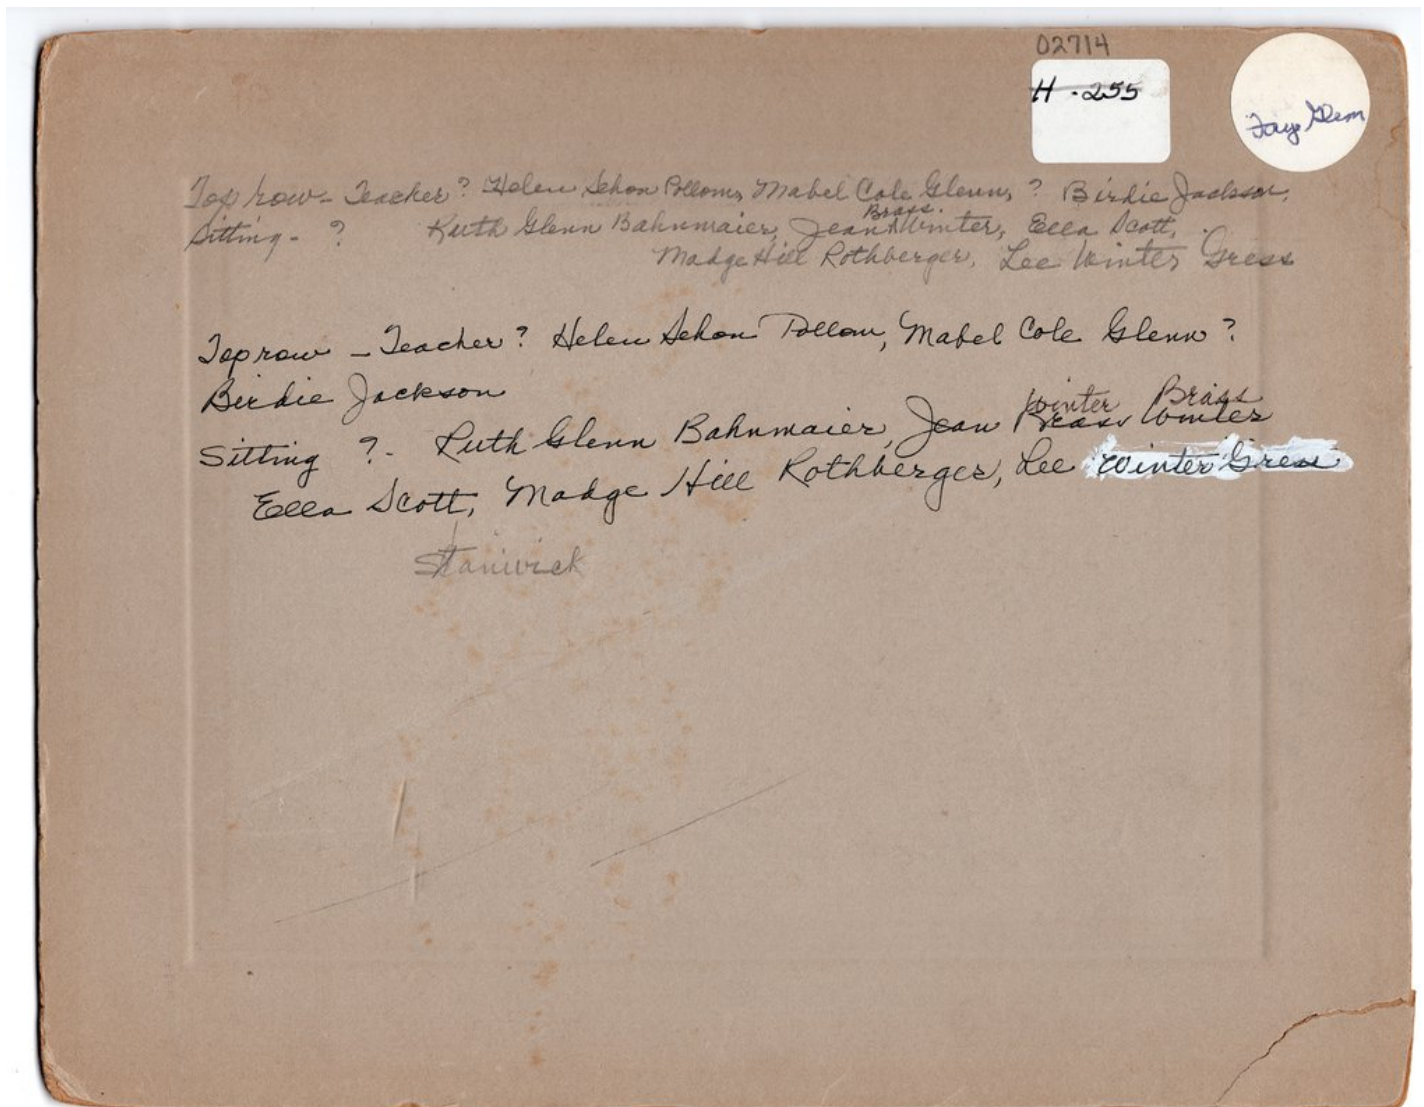 02714
H-255
Faye Glenn
Top row - Teacher? Helen Schon Pollom, Mabel Cole Glenn, ? Birdie Jackson,
Brass.
Sitting - ? Ruth Glenn Bahnmaier, Jean Winter, Ella Scott,
Madge Hill Rothberger, Lee Winter Gress
Top row - Teacher? Helen Schon Pollom, Mabel Cole Glenn ?
Birdie Jackson
Winter Brass
Sitting ? - Ruth Glenn Bahnmaier, Jean Brass Winter
Ella Scott, Madge Hill Rothberger, Lee Winter Gress
Stanwick